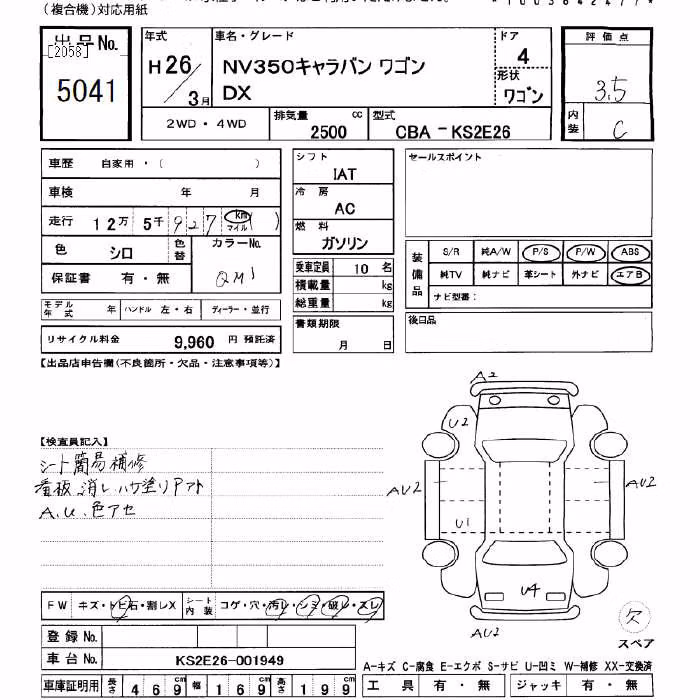 (複合機)対応用紙
出品No.
[2058]
5041
年式
H26/3月
車名・グレード
NV350キャラバン ワゴン
DX
ドア
4
形状
ワゴン
評価点
3.5
内装
C
2WD・4WD
排気量
2500 cc
型式
CBA-KS2E26
車歴 自家用・( )
車検 年 月
走行 12万 5千 927 km マイル ( )
色 シロ 色替 カラーNo. QM1
保証書 有・無
モデル年式 年 ハンドル 左・右 ディーラー・並行
リサイクル料金 9,960 円 預託済
シフト
IAT
冷房
AC
燃料
ガソリン
乗車定員 10 名
積載量 kg
総重量 kg
書類期限
月 日
セールスポイント
装備品
S/R 純A/W P/S P/W ABS
純TV 純ナビ 革シート 外ナビ エアB
ナビ型番:
後日品
【出品店申告欄(不良箇所・欠品・注意事項等)】
【検査員記入】
シート簡易補修
看板消しハケ塗りアト
A.U.色アセ
A2
U2
AU2
AU2
U1
U4
AU2
欠
スペア
FW キズ・トビ石・割レX シート内装 コゲ・穴・汚レ・シミ・破レ・スレ
登録No.
車台No. KS2E26-001949
車庫証明用 長さ 469cm 幅 169cm 高さ 199cm
A-キズ C-腐食 E-エクボ S-サビ U-凹ミ W-補修 XX-交換済
工具 有・無 ジャッキ 有・無